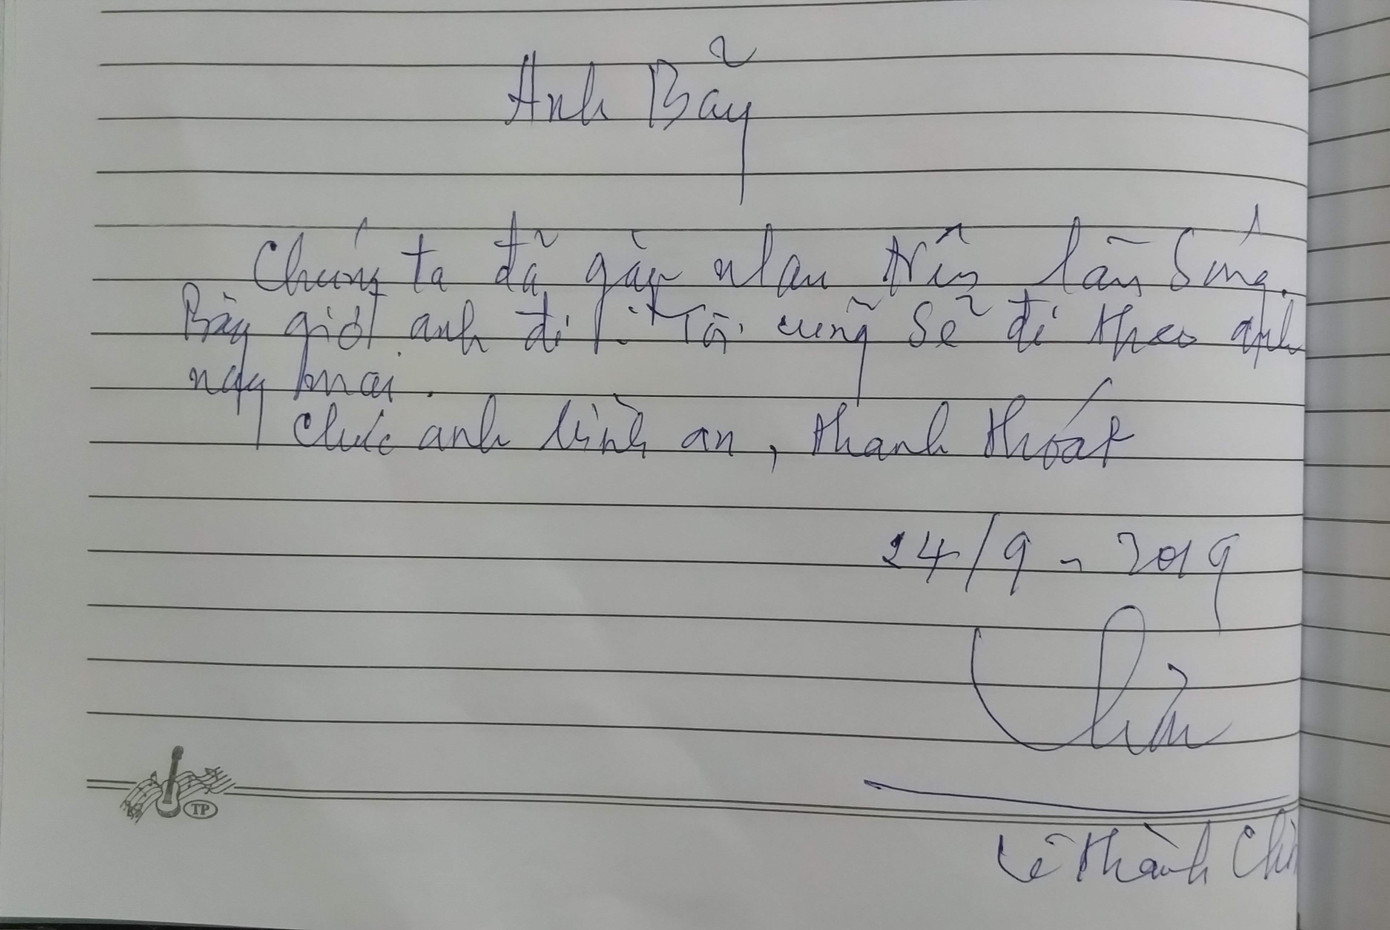 Anh Bảy
Chúng ta đã gặp nhau trên làn sóng.
Bây giờ anh đi Tôi cũng sẽ đi theo anh
ngày mai.
Chúc anh bình an, thanh thoát
24/9 - 2019
Lê Thành
TP